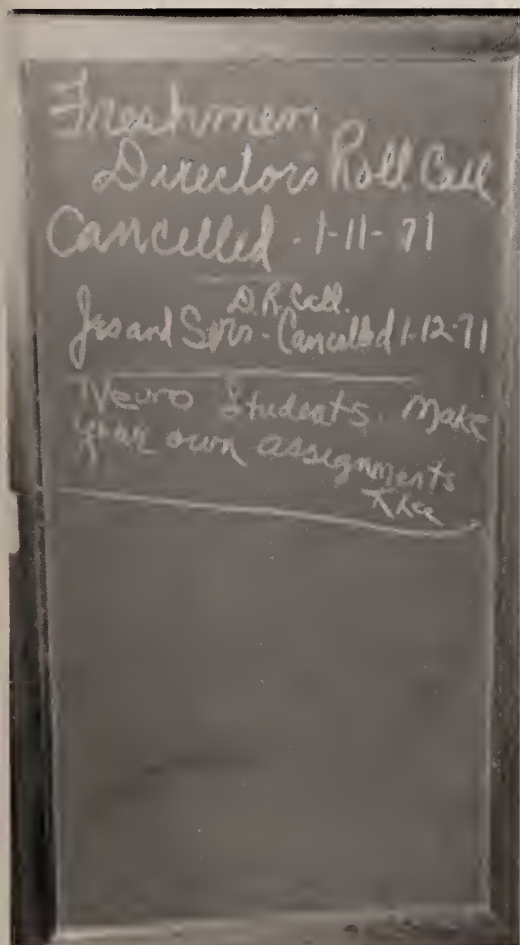 Freshmen
Directors Roll Call
Cancelled - 1-11-71
D.R. Call.
Jrs and Srs - Cancelled 1-12-71
Neuro Students. Make
your own assignments